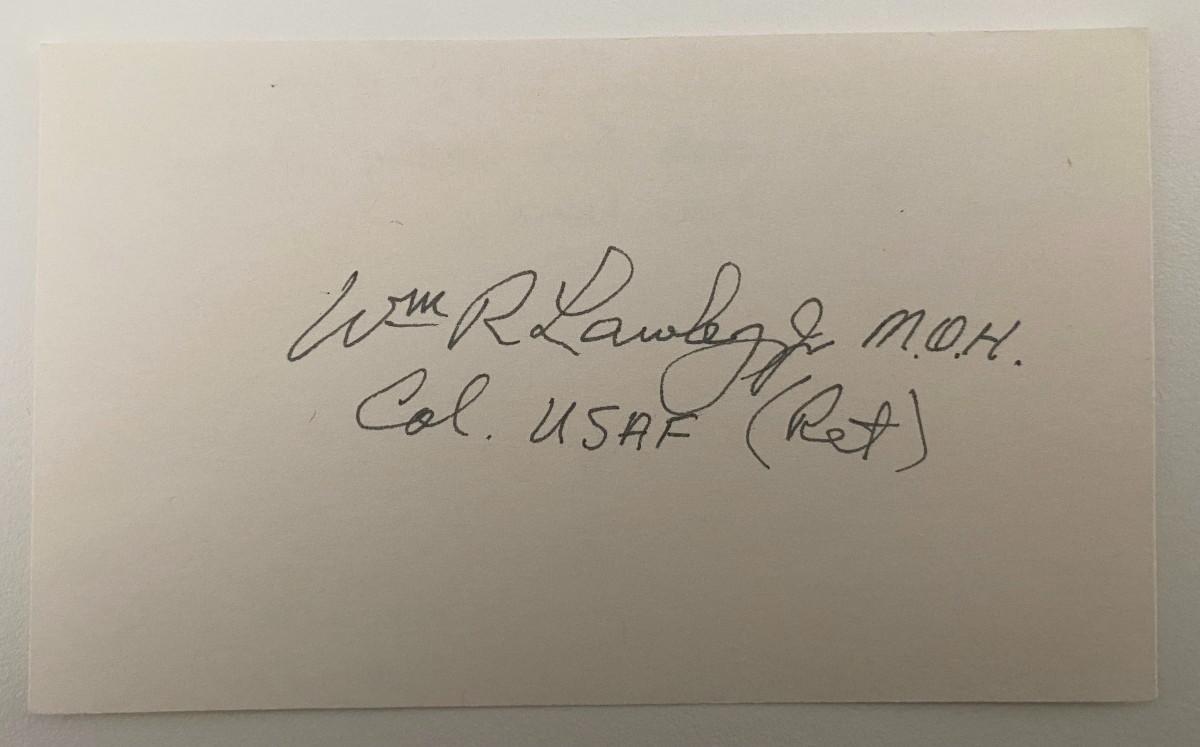 Wm R Lawley Jr M.O.H.
Col. USAF (Ret)